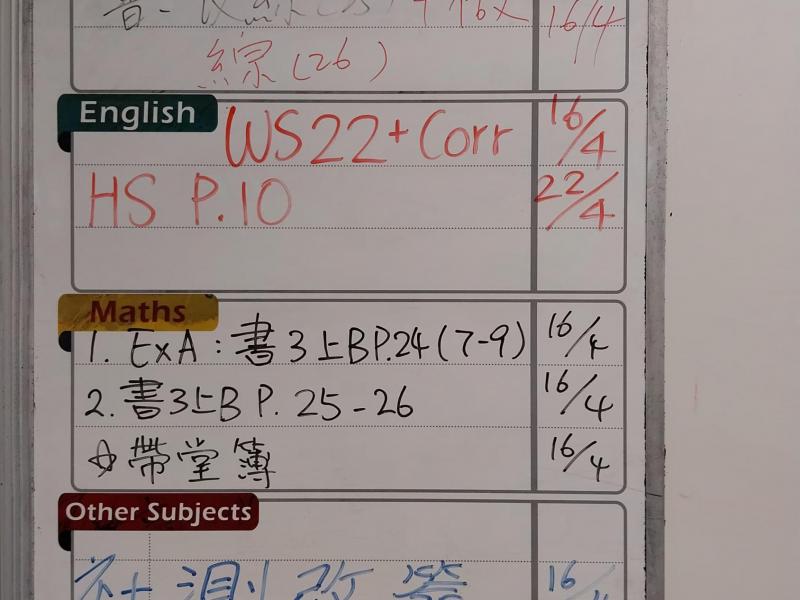 16/4
線(26)
English
WS22+Corr 16/4
HS P.10 22/4
Maths
1. ExA:書3上BP.24(7-9) 16/4
2.書3上B P. 25-26 16/4
☆帶堂簿 16/4
Other Subjects
社測改 16